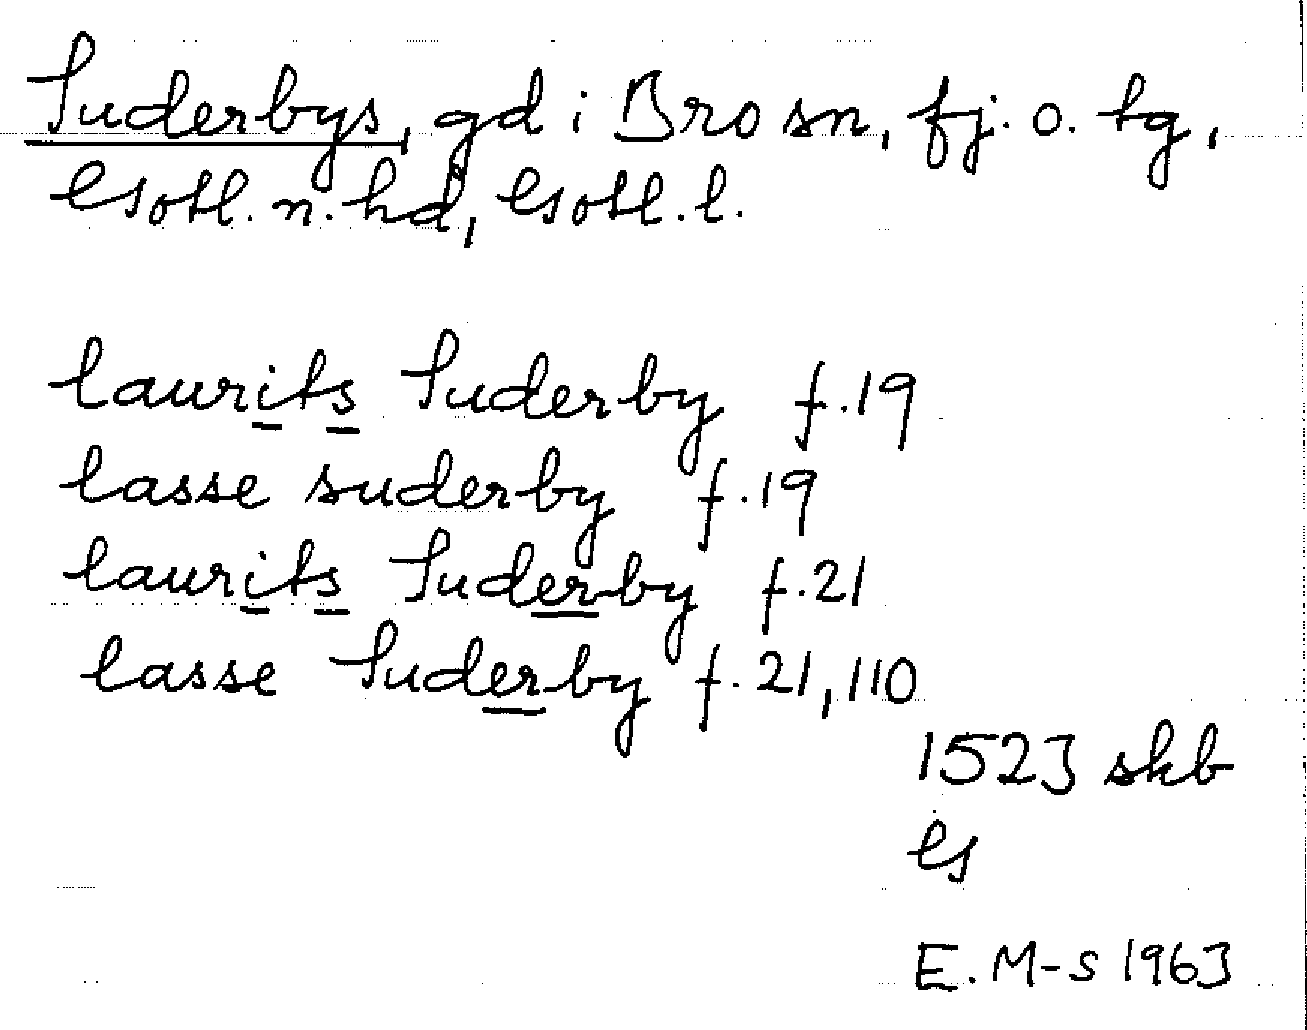 Suderbys, gd i Bro sn, fj. o. tg,
Gotl. n. hd, Gotl. l.
laurits Suderby f. 19
lasse suderby f. 19
laurits Suderby f. 21
lasse Suderby f. 21, 110
1523 skb
G
E. M-s 1963